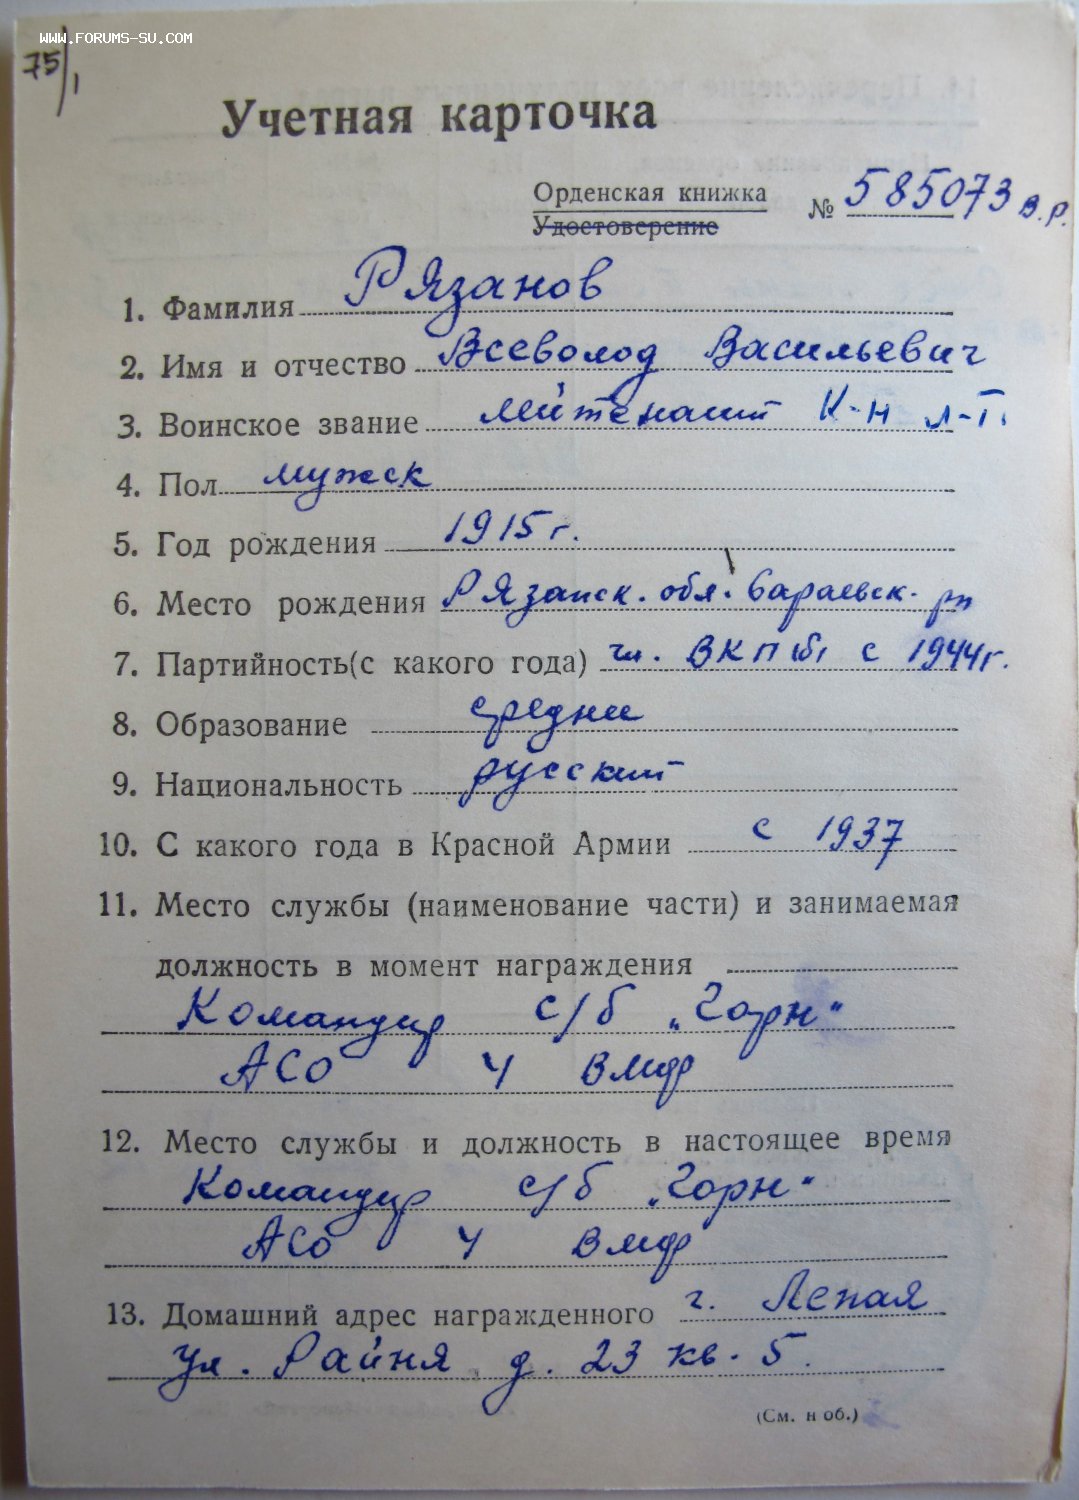 www.forums-su.com
75/1
Учетная карточка
Орденская книжка № 585073 в.р.
Удостоверение
1. Фамилия Рязанов
2. Имя и отчество Всеволод Васильевич
3. Воинское звание лейтенант К-н л-т.
4. Пол мужск
5. Год рождения 1915 г.
6. Место рождения Рязанск. обл. Сараевск. рн
7. Партийность(с какого года) чл. ВКП(б) с 1944 г.
8. Образование средне
9. Национальность русский
10. С какого года в Красной Армии с 1937
11. Место службы (наименование части) и занимаемая
должность в момент награждения
Командир с/б „Горн"
АСО 4 ВМФ
12. Место службы и должность в настоящее время
Командир с/б „Горн"
АСО 4 ВМФ
13. Домашний адрес награжденного г. Лепая
ул. Райня д. 23 кв. 5.
(См. н об.)